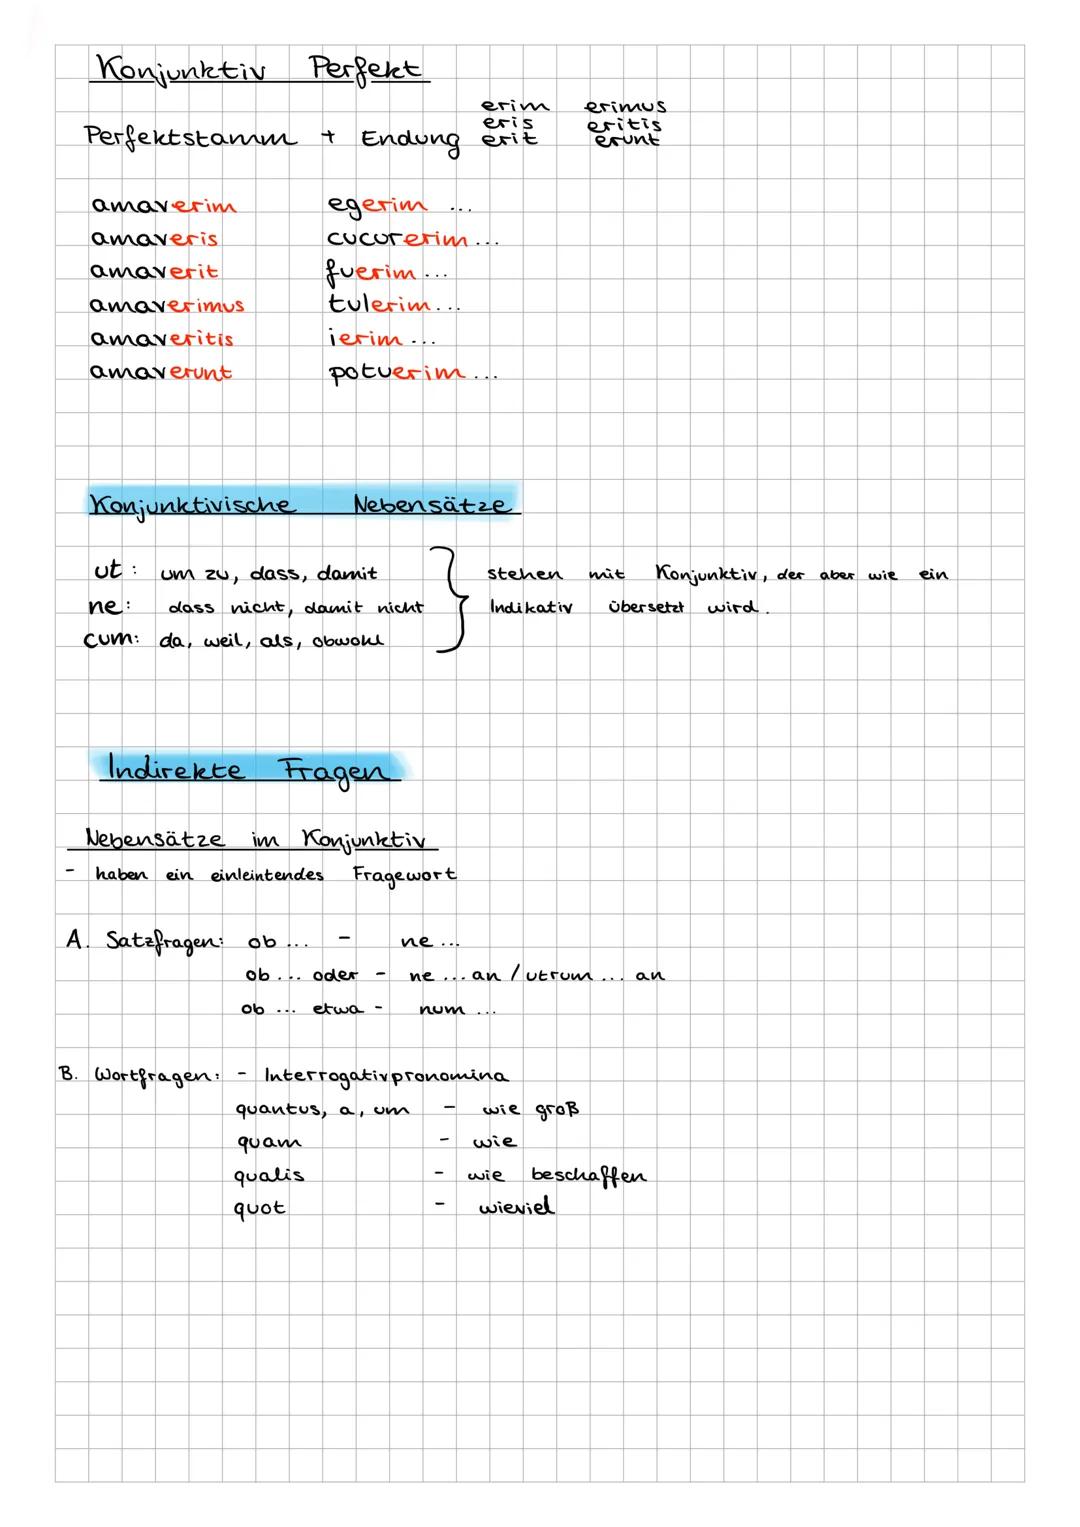 Konjunktiv Perfekt
erim erimus
eris eritis
Perfektstamm + Endung erit erunt
amaverim egerim ...
amaveris cucurerim ...
amaverit fuerim ...
amaverimus tulerim ...
amaveritis ierim ...
amaverunt potuerim ...
Konjunktivische Nebensätze
ut : um zu, dass, damit stehen mit Konjunktiv, der aber wie ein
ne: dass nicht, damit nicht Indikativ übersetzt wird.
cum: da, weil, als, obwohl
Indirekte Fragen
Nebensätze im Konjunktiv
- haben ein einleintendes Fragewort
A. Satzfragen: ob ... - ne ...
ob ... oder - ne ... an / utrum ... an
ob ... etwa - num ...
B. Wortfragen: - Interrogativpronomina
quantus, a, um - wie groß
quam - wie
qualis - wie beschaffen
quot - wieviel